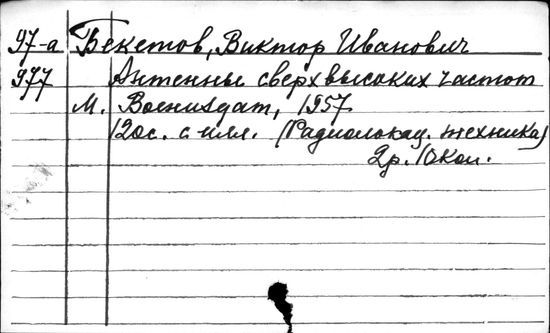 97-а Бекетов, Виктор Иванович
977 Антенны сверхвысоких частот
М. Воениздат, 1957
120с. с илл. (Радиолокац. техника)
2р. 10коп.